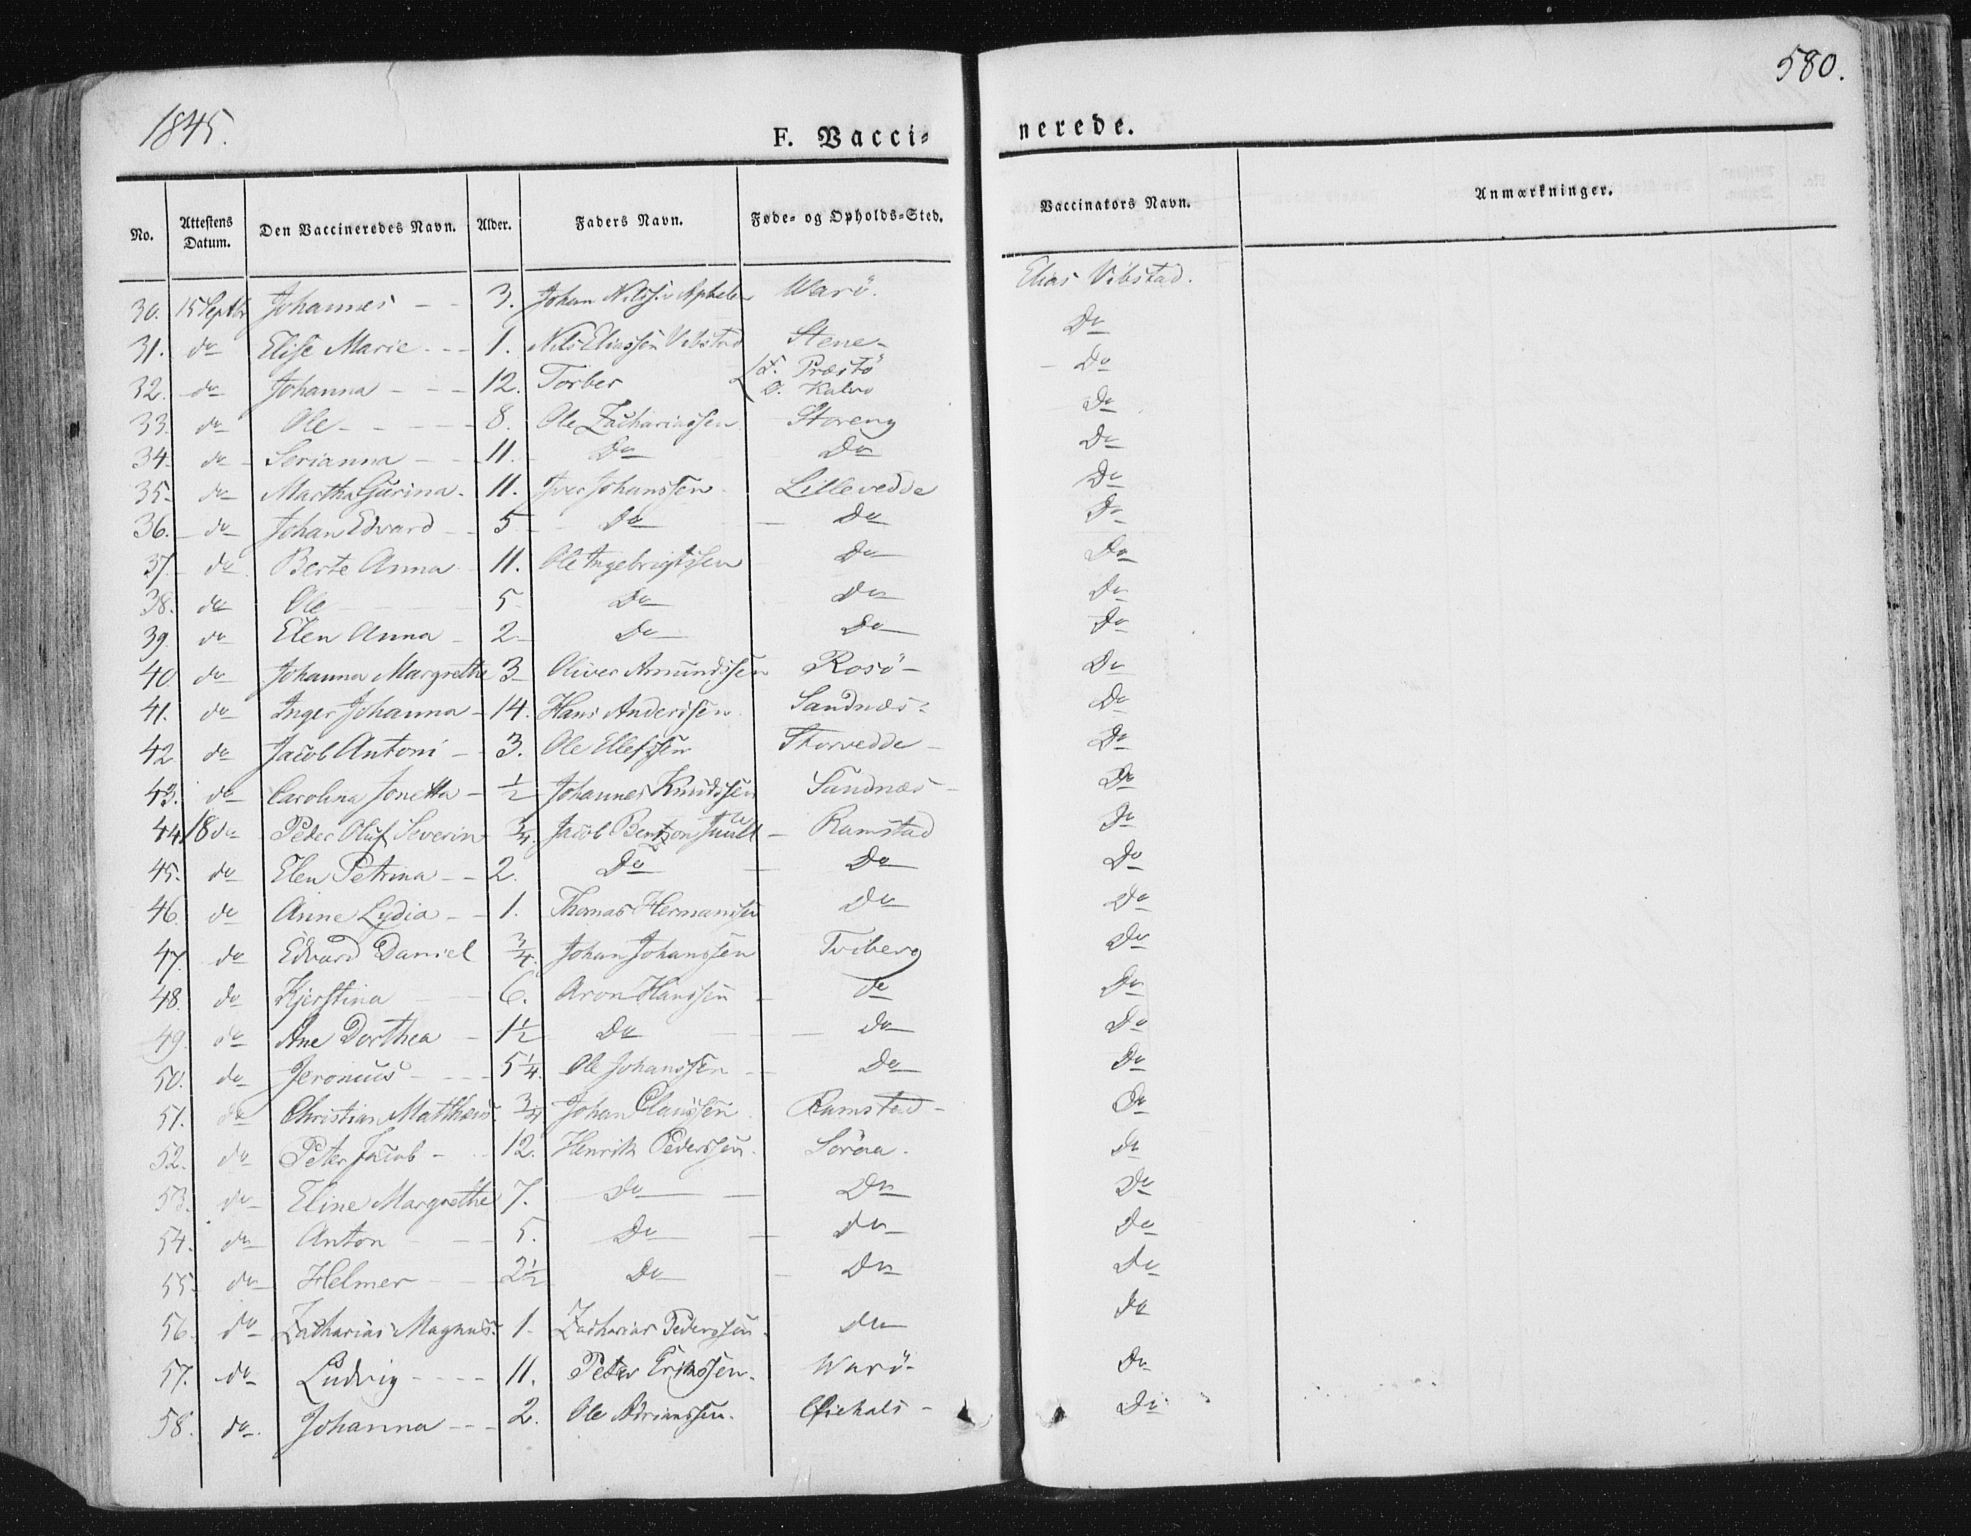 1845.
580.
F. Vacci= nerede.
No. Attestens Datum. Den Vaccineredes Navn. Alder. Faders Navn. Føde= og Opholds=Sted. Vaccinators Navn. Anmærkninger.
30. 15 Septbr Johannes - - 3. Johan Nilssen Warö. Elias Vibstad.
31. do Elise Marie - - 1. Nils Eliassen Vibstad Stene - Do
32. do Johanna - - - 12. Torber F. Præstö O. Kalvö Do
33. do Ole - - - - - 8. Ole Zachariassen Storeng Do
34. do Serianna - - 11. Do Do Do
35. do Martha Gurina - 11. Iver Johanssen Lillevedde Do
36. do Johan Edvard - - 5 - Do Do Do
37. do Berte Anna 11. Ole Ingebrigtssen Do Do
38. do Ole 5 Do Do Do
39. do Elen Anna - 2 - Do Do Do
40 do Johanna Margrethe 3 Oliver Amundssen Rosö - Do
41. do Inger Johanna - 14. Hans Anderssen Sandnæs - Do
42 do Jacob Antoni - 3. Ole Ellefssen Storvedde - Do
43. do Carolina Jonetta - 1/2 Johannes Knudssen Sandnæs - Do
44 18 do Peder Oluf Severin 3/4. Jacob Bentzon - Ramstad Do
45. do Elen Petrina - - 2. Do Do Do
46. do Anne Lydia - - 1. Thomas Hermanssen Do Do
47. do Edvard Daniel 3/4. Johan Johanssen Tviberg Do
48. do Kjerstina 6. Aron Hanssen - Do Do
49. do Ane Dorthea - 1 1/2 Do Do Do
50. do Jeronius - - - 5 1/4. Ole Johanssen - Do Do
51. do Christian Mathæus 3/4 Johan Claussen Ramstad - Do
52. do Peter Jacob - 12. Henrik Pederssen. Soröen. Do
53. do Eline Margrethe 7. Do Do Do
54. do Anton - - 5. Do Do Do
55. do Helmer - - 2 1/2 Do Do Do
56. do Zacharias Magnus. 1. Zacharias Pederssen. do do
57. do Ludvig - - - - 11. Peter Erikssen. Warö - Do
58. do. Johanna - - - 2. Ole Adrianssen. Öiehals - Do